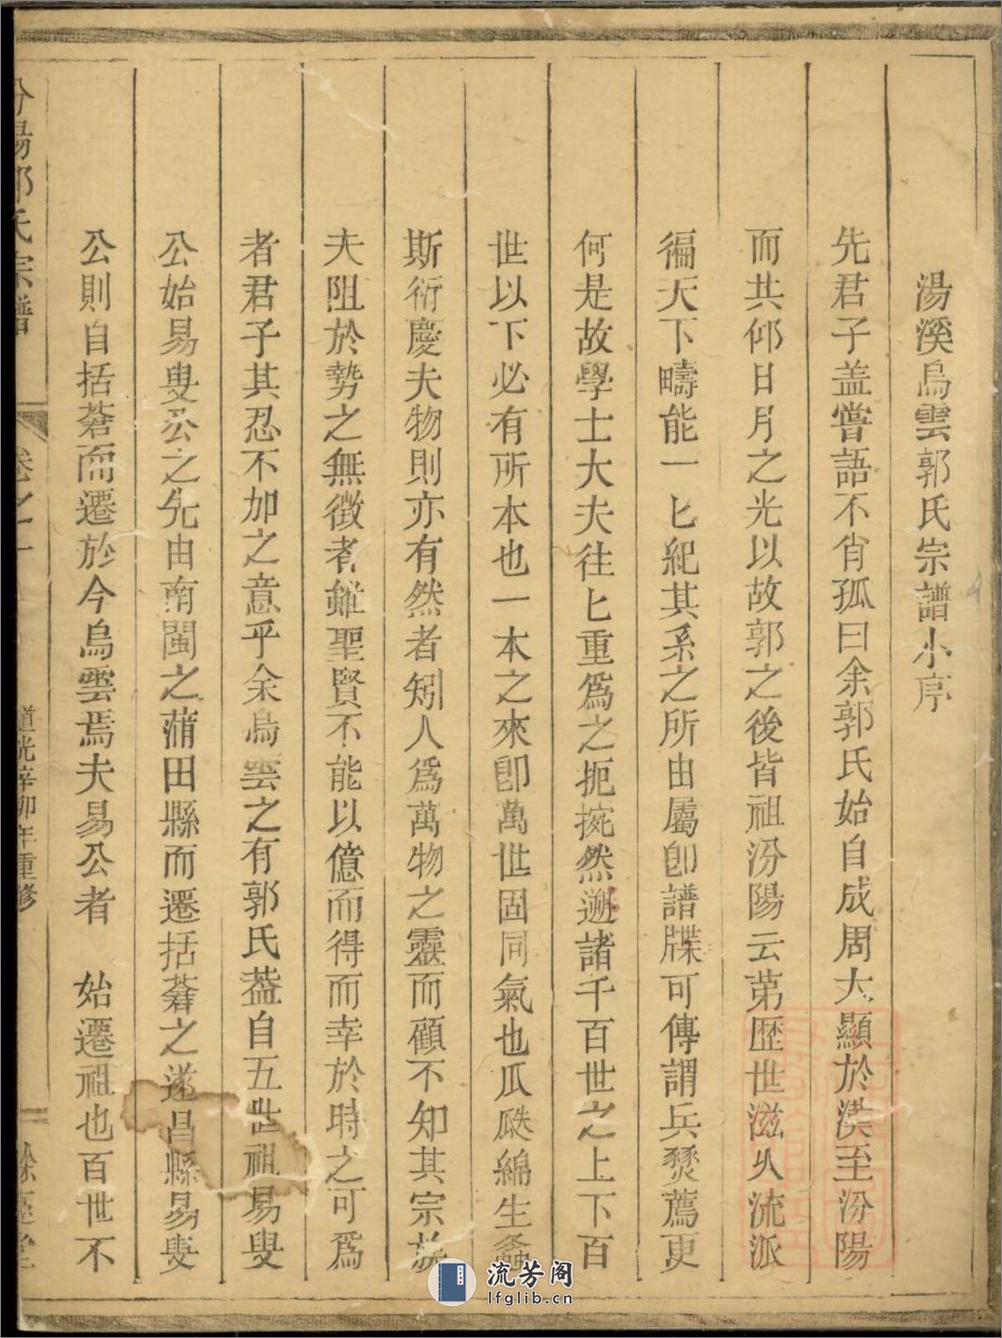 湯溪烏雲郭氏宗譜小序
先君子盖嘗語不肖孤曰余郭氏始自成周大顯於漢至汾陽
而共仰日月之光以故郭之後皆祖汾陽云第歷世滋乆流派
徧天下疇能一匕紀其系之所由屬卽譜牒可傳謂兵燹薦更
何是故學士大夫往匕重爲之扼捥然遡諸千百世之上下百
世以下必有所本也一本之來卽萬世固同氣也瓜瓞綿生螽
斯衍慶夫物則亦有然者矧人爲萬物之靈而顧不知其宗族
夫阻於勢之無徵者雖聖賢不能以億而得而幸於時之可爲
者君子其忍不加之意乎余烏雲之有郭氏葢自五世祖易叟
公始易叟公之先由南閩之蒲田縣而遷括蒼之遂昌縣易叟
公則自括蒼而遷於今烏雲焉夫易公者 始遷祖也百世不
汾陽郭氏宗譜 卷之一 道光辛卯年重修
流芳阁
lfglib.cn